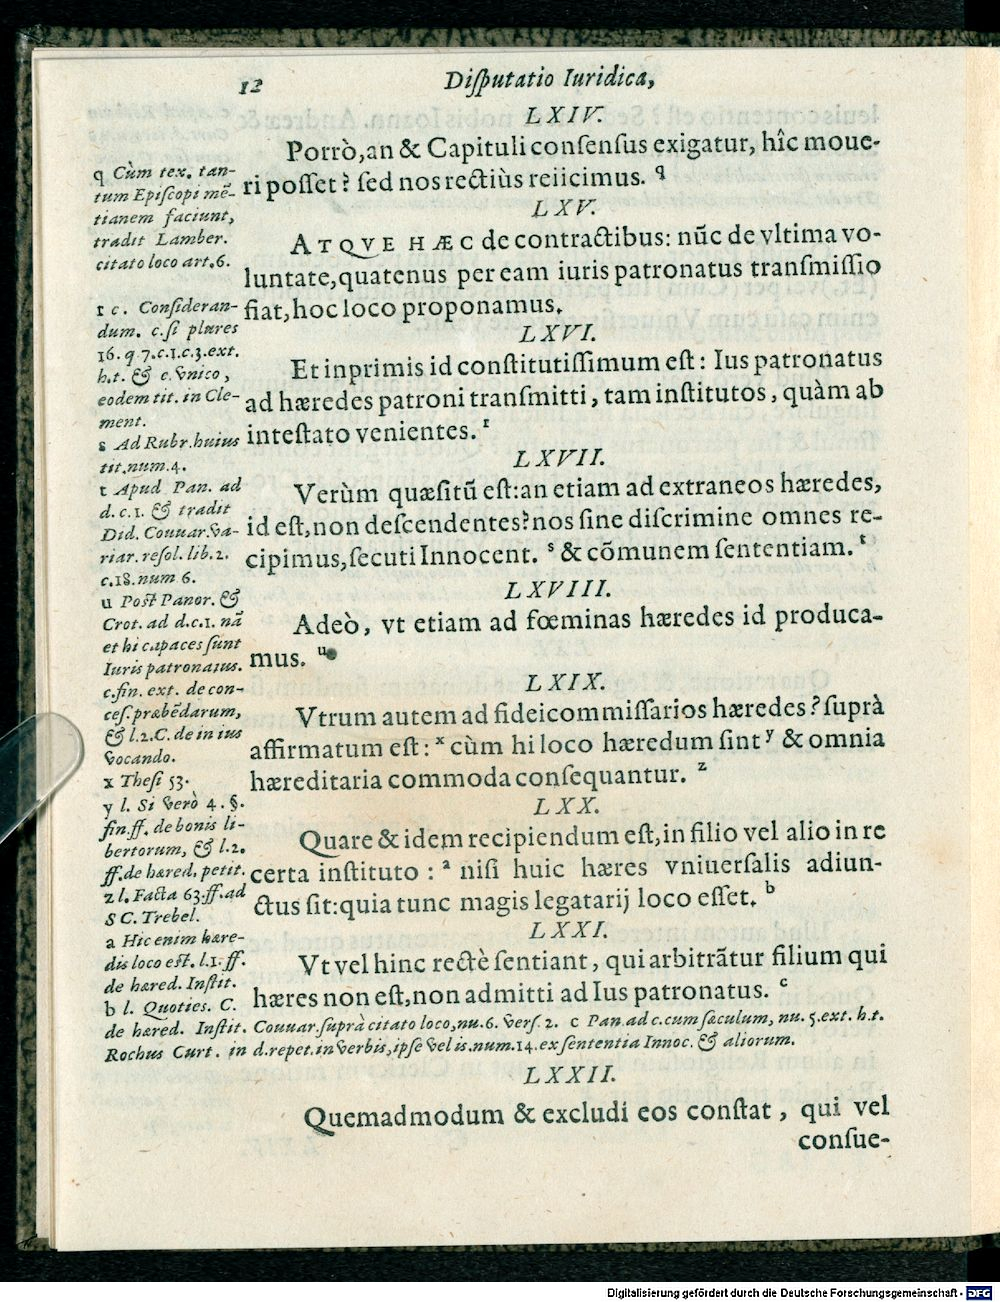 12
Disputatio Iuridica,
LXIV.
Porrò, an & Capituli consensus exigatur, hîc moue-
ri posset? sed nos rectiùs reiicimus. q
LXV.
ATQVE HÆC de contractibus: nũc de vltima vo-
luntate, quatenus per eam iuris patronatus transmissio
fiat, hoc loco proponamus.
LXVI.
Et inprimis id constitutissimum est: Ius patronatus
ad hæredes patroni transmitti, tam institutos, quàm ab
intestato venientes. r
LXVII.
Verùm quæsitũ est: an etiam ad extraneos hæredes,
id est, non descendentes? nos sine discrimine omnes re-
cipimus, secuti Innocent. s & cõmunem sententiam. t
LXVIII.
Adeò, vt etiam ad fœminas hæredes id produca-
mus. u
LXIX.
Vtrum autem ad fideicommissarios hæredes? suprà
affirmatum est: x cùm hi loco hæredum sint y & omnia
hæreditaria commoda consequantur. z
LXX.
Quare & idem recipiendum est, in filio vel alio in re
certa instituto: a nisi huic hæres vniuersalis adiun-
ctus sit: quia tunc magis legatarij loco esset. b
LXXI.
Vt vel hinc rectè sentiant, qui arbitrãtur filium qui
hæres non est, non admitti ad Ius patronatus. c
LXXII.
Quemadmodum & excludi eos constat, qui vel
consue-
q Cùm tex. tan-
tum Episcopi mẽ-
tianem faciunt,
tradit Lamber.
citato loco art. 6.
r c. Consideran-
dum. c. si plures
16. q. 7. c. 1. c. 3. ext.
h. t. & c. vnico,
eodem tit. in Cle-
ment.
s Ad Rubr. huius
tit. num. 4.
t Apud Pan. ad
d. c. 1. & tradit
Did. Couuar. va-
riar. resol. lib. 2.
c. 18. num 6.
u Post Panor. &
Crot. ad d. c. 1. nã
et hi capaces sunt
Iuris patronatus.
c. fin. ext. de con-
ces. præbẽdarum,
& l. 2. C. de in ius
vocando.
x Thesi 53.
y l. Si verò 4. §.
fin. ff. de bonis li-
bertorum, & l. 2.
ff. de hæred. petit.
z l. Facta 63. ff. ad
SC. Trebel.
a Hic enim hære-
dis loco est. l. 1. ff.
de hæred. Instit.
b l. Quoties. C.
de hæred. Instit. Couuar. suprà citato loco, nu. 6. vers. 2. c Pan. ad c. cum sæculum, nu. 5. ext. h. t.
Rochus Curt. in d. repet. in verbis, ipse vel is. num. 14. ex sententia Innoc. & aliorum.
Digitalisierung gefördert durch die Deutsche Forschungsgemeinschaft - DFG